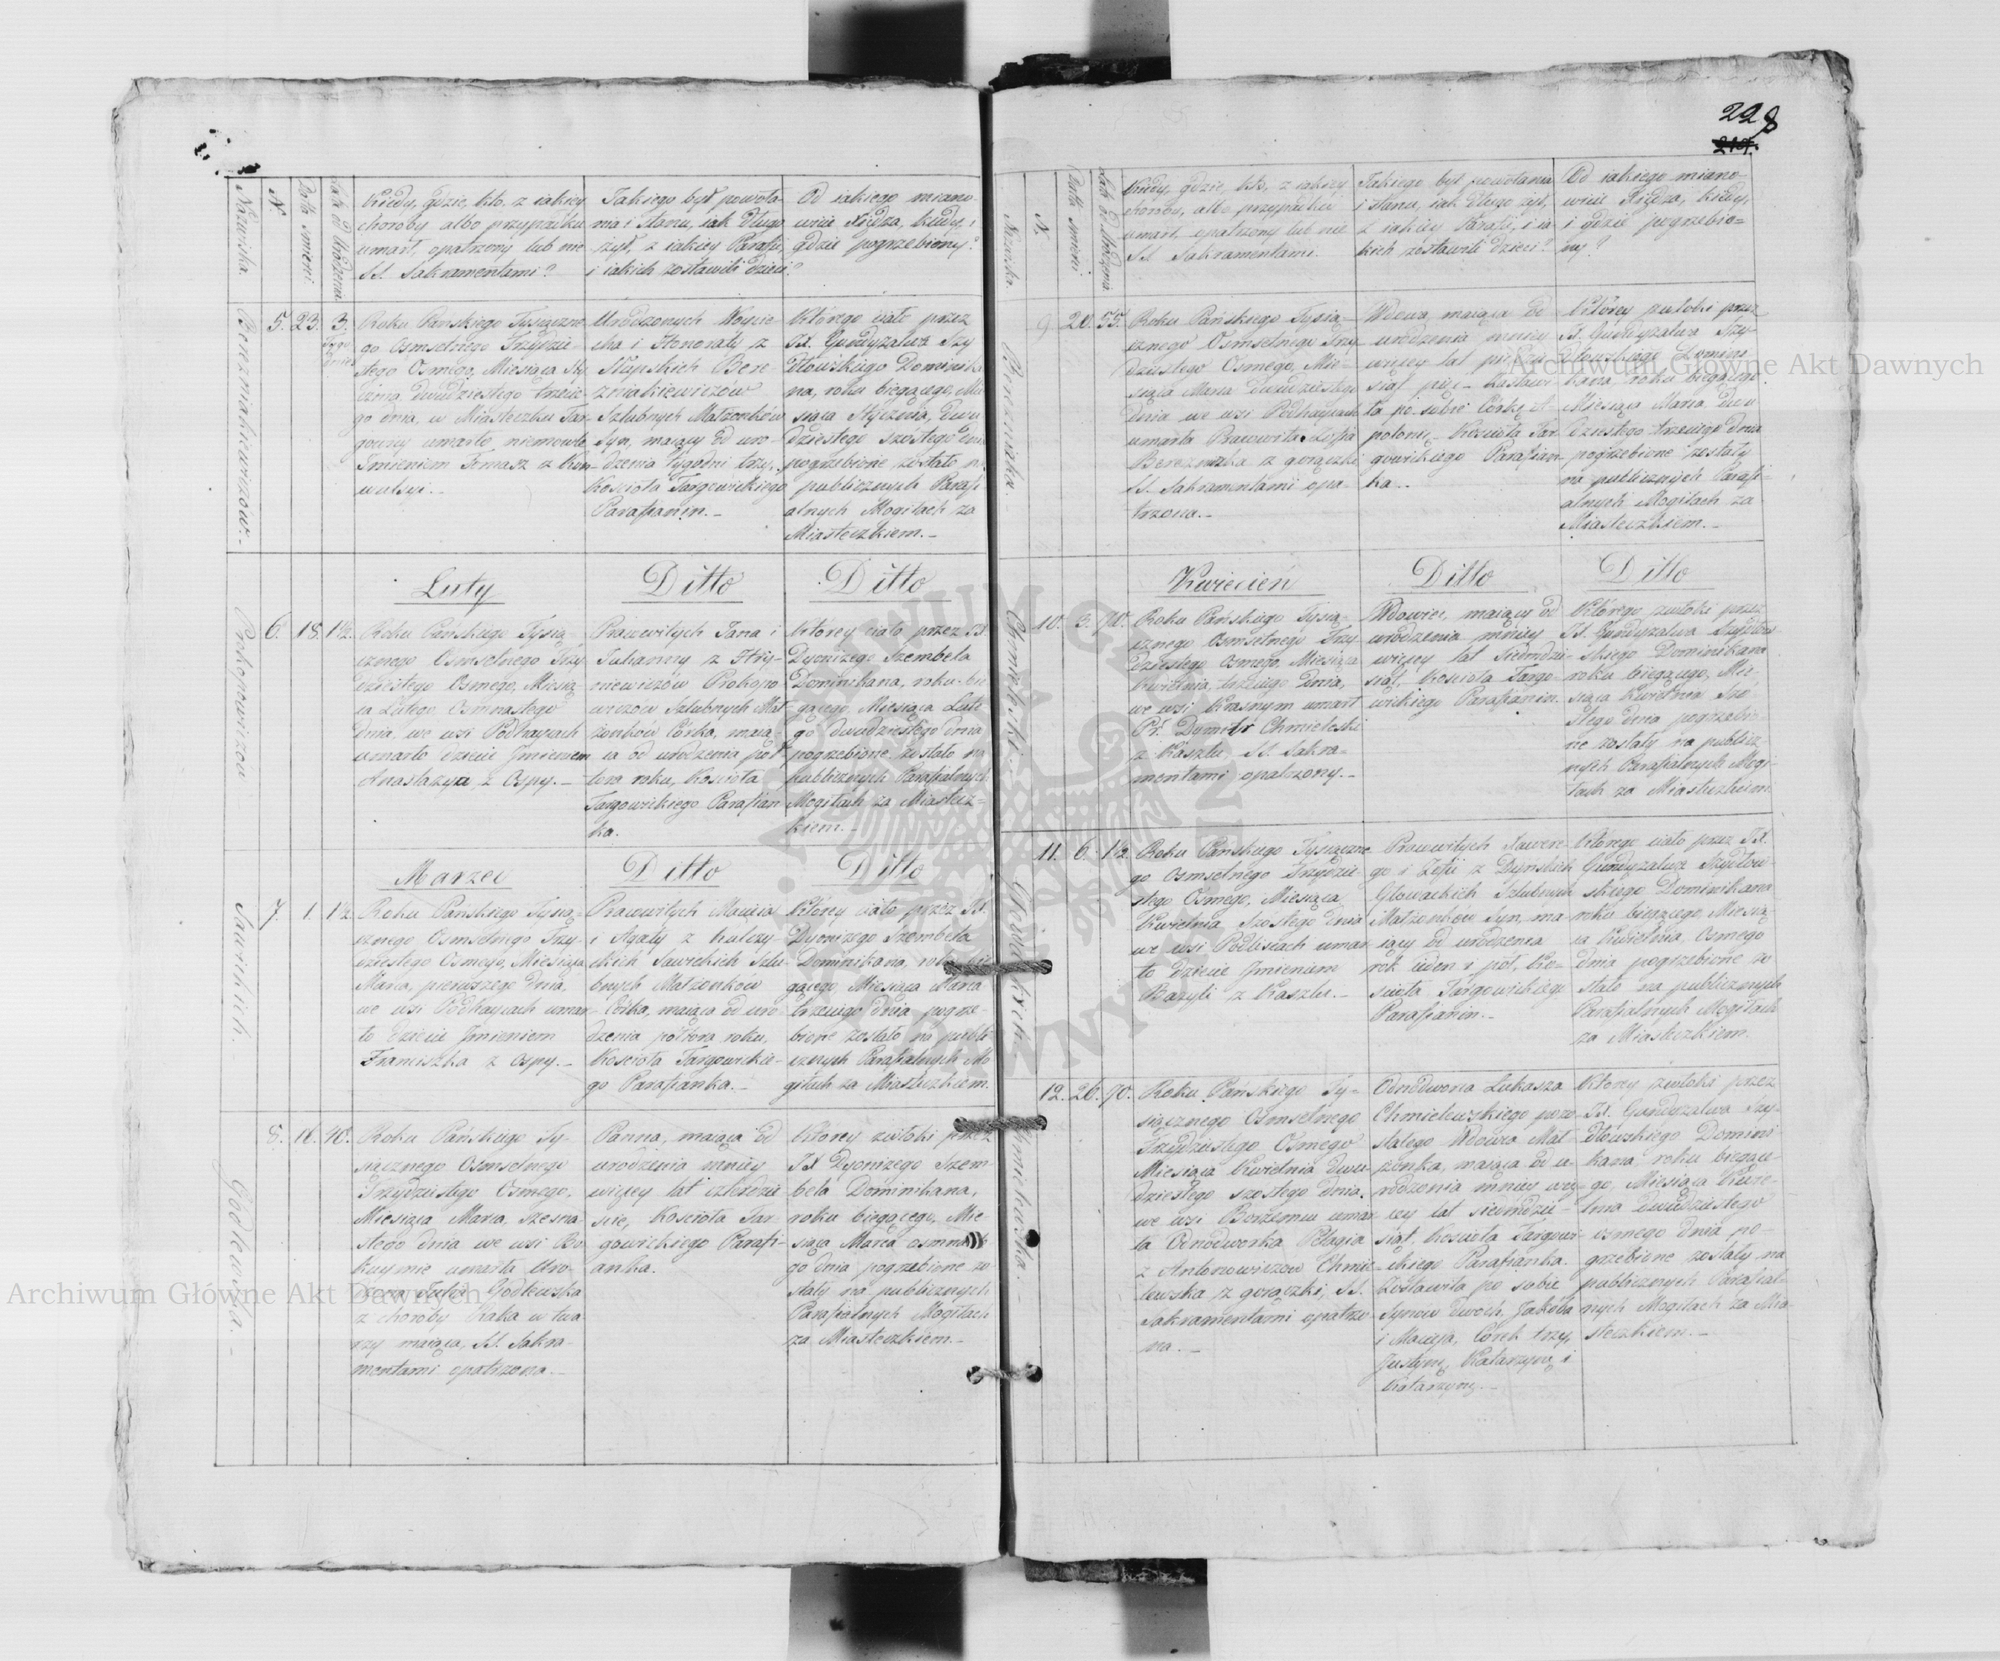 228
219.
Nazwiska.
N.
Data śmierci
Lata od Urodzenia
Kiedy, gdzie, kto, z iakiey
choroby albo przypadku
umarł, opatrzony lub nie
SS. Sakramentami?
Jakiego był powoła-
nia i stanu, iak długo
żył, z iakiey Parafii,
i iakich zostawił dzieci?
Od iakiego miano-
wicie Xiędza, kiedy, i
gdzie pogrzebiony?
Bereźniakiewiczów.-
5. 23. 3.
Roku Pańskiego Tysiączne-
go Osmsetnego Trzydzie-
stego Osmego, Miesiąca Sty-
cznia, dwudziestego trzecie-
go dnia, w Miasteczku Tar-
gowicy umarło niemowlę
Imieniem Tomasz z Kon-
wulsyi.-
Urodzonych Woycie-
cha i Honoraty z
Słupskich Bere-
źniakiewiczów
Szlubnych Małżonków
Syn, maiący od uro-
dzenia tygodni trzy,
Kościoła Targowickiego
Parafianin.-
Którego ciało przez
JX. Gundyzalwa Szy-
dłowskiego Dominika-
na, roku bieżącego, Mie-
siąca Stycznia, dwu-
dziestego szóstego dnia
pogrzebione zostało na
publicznych Parafi-
alnych Mogiłach za
Miasteczkiem.-
Luty
Ditto
Ditto
Prokopowiczów
6. 18. 1½.
Roku Pańskiego Tysią-
cznego Osmsetnego Trzy-
dziestego Osmego, Miesią-
ca Lutego, Osmnastego
dnia, we wsi Podhaycach
umarło dziecie Imieniem
Anastazya z Ospy.-
Pracowitych Jana i
Julianny z Hry-
niewiczów Prokopo-
wiczów Szlubnych Mał-
żonków Córka, maią-
ca od urodzenia puł-
tora roku, Kościoła
Targowickiego Parafian-
ka.
Którey ciało przez JX.
Dyonizego Szembela
Dominikana, roku bie-
żącego, Miesiąca Lute-
go dwudziestego dnia
pogrzebione zostało na
publicznych Parafialnych
Mogiłach za Miastecz-
kiem.-
Marzec
Ditto
Ditto
Sawickich.
7. 1. 1½
Roku Pańskiego Tysią-
cznego Osmsetnego Trzy-
dziestego Osmego, Miesiąca
Marca, pierwszego dnia,
we wsi Podhaycach umar-
ło dziecie Imieniem
Franciszka z Ospy.-
Pracowitych Macieia
i Agaty z Kulczy-
ckich Sawickich Szlu-
bnych Małżonków
Córka, maiąca od uro-
dzenia półtora roku,
Kościoła Targowickie-
go Parafianka.-
Którey ciało przez JX.
Dyonizego Szembela
Dominikana, roku bie-
żącego, Miesiąca Marca
trzeciego dnia pogrze-
bione zostało na publi-
cznych Parafialnych Mo-
giłach za Miasteczkiem.
Godlewska.-
8. 16. 40.
Roku Pańskiego Ty-
siącznego Osmsetnego
Trzydziestego Osmego,
Miesiąca Marca, szesna-
stego dnia we wsi Bo-
kuymie umarła Uro-
dzona Julia Godlewska
z choroby Raka w twa-
rzy maiąca, SS. Sakra-
mentami opatrzona.-
Panna, maiąca od
urodzenia mniey
więcey lat czterdzie-
ście, Kościoła Tar-
gowickiego Parafi-
anka.
Którey zwłoki przez
JX Dyonizego Szem-
bela Dominikana,
roku bieżącego, Mie-
siąca Marca osmnaste-
go dnia pogrzebione zo-
stały na publicznych
Parafialnych Mogiłach
za Miasteczkiem.-
Nazwiska.
N.
Data śmierci
Lata od Urodzenia
Kiedy, gdzie, kto, z iakiey
choroby, albo przypadku
umarł, opatrzony lub nie
SS. Sakramentami.
Jakiego był powołania
i stanu, iak długo żył,
z iakiey Parafii, i ia-
kich zostawił dzieci?
Od iakiego miano-
wicie Xiędza, kiedy,
i gdzie pogrzebio-
ny?
Berezowska.
9. 20. 55.
Roku Pańskiego Tysią-
cznego Osmsetnego Trzy-
dziestego Osmego, Mie-
siąca Marca dwudziestego
dnia we wsi Podhaycach
umarła Pracowita Zofia
z gorączki
SS. Sakramentami opa-
trzona.-
Wdowa, maiąca od
urodzenia mniey
więcey lat pięćdzie-
siąt pięć.- Zostawi-
ła po sobie Córkę A-
polonię.- Kościoła Tar-
gowickiego Parafian-
ka.-
Którey zwłoki przez
JX. Gundyzalwa Szy-
dłowskiego Domini-
kana, roku bieżącego,
Miesiąca Marca dwu-
dziestego trzeciego dnia
pogrzebione zostały
na publicznych Parafi-
alnych Mogiłach za
Miasteczkiem.-
Kwiecień
Ditto
Ditto
Chmieleski.
10. 3. 70.
Roku Pańskiego Tysią-
cznego Osmsetnego Trzy-
dziestego Osmego, Miesiąca
Kwietnia, trzeciego dnia,
we wsi Krasnym umarł
Pr. Dymitr Chmieleski
z Kaszlu, SS. Sakra-
mentami opatrzony.-
Wdowiec, maiący od
urodzenia mniey
więcey lat siedmdzie-
siąt, Kościoła Targo-
wickiego Parafianin.
Którego zwłoki przez
JX. Gundyzalwa Szydłow-
skiego Dominikana
roku bieżącego, Mie-
siąca Kwietnia Szó-
stego dnia pogrzebio-
ne zostały na publicz-
nych Parafialnych Mogi-
łach za Miasteczkiem
Głowackich.
11. 6. 1½
Roku Pańskiego Tysiączne-
go Osmsetnego Trzydzie-
stego Osmego, Miesiąca
Kwietnia Szóstego dnia
we wsi Podliscach umar-
ło dziecie Imieniem
Bazyli z Kaszlu.-
Pracowitych Xawere-
go i Zofii z Dyńskich
Głowackich Szlubnych
Małżonków Syn, ma-
iący od urodzenia
rok ieden i pół, Ko-
ścioła Targowickiego
Parafianin.-
Którego ciało przez JX.
Gundyzalwa Szydłow-
skiego Dominikana
roku bieżącego, Miesią-
ca Kwietnia, Osmego
dnia pogrzebione zo-
stało na publicznych
Parafialnych Mogiłach
za Miasteczkiem.
Chmielewska.-
12. 26. 70.
Roku Pańskiego Ty-
siącznego Osmsetnego
Trzydziestego Osmego
Miesiąca Kwietnia dwu-
dziestego szóstego dnia
we wsi umar-
ła Odnodworka Pelagia
z Antonowiczów Chmie-
lewska z gorączki, SS.
Sakramentami opatrzo-
na.-
Odnodworca Łukasza
Chmielewskiego pozo-
stałego Wdowca Mał-
żonka, maiąca od u-
rodzenia mniey wię-
cey lat siedmdzie-
siąt. Kościoła Targowi-
ckiego Parafianka.
Zostawiła po sobie
Synów dwoch, Jakóba
i Macieja, Córek trzy,
Justynę, Katarzynę i
Katarzynę.-
Którey zwłoki przez
JX. Gundyzalwa Szy-
dłowskiego Domini-
kana, roku bieżące-
go, Miesiąca Kwie-
tnia dwudziestego
osmego dnia po-
grzebione zostały na
publicznych Parafial-
nych Mogiłach za Mia-
steczkiem.-
Archiwum Główne Akt Dawnych
Archiwum Główne Akt Dawnych